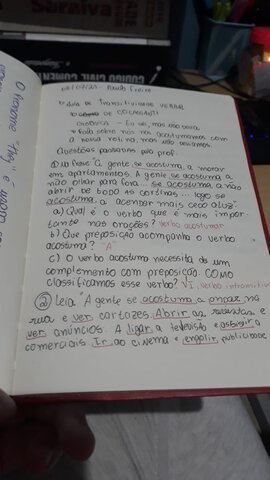 Saraiva
CÓDIGO CIVIL COMENT
Paulo Freire
→ Aula de Transitividade VERBAL
de COLASANTI
CRÔNICA - Eu sei, mas não devia
→ Fala sobre nós nos acostumarmos com
a nossa rotina, mas não devíamos
Questões passadas pelo prof.
① Na frase "A gente se acostuma a morar
em apartamentos. A gente se acostuma a
não olhar para fora... se acostuma a não
abrir de todo as cortinas... logo se
acostuma a acender mais cedo a luz"
a) Qual é o verbo que é mais impor-
tante nas orações? Verbo acostumar
b) Que preposição acompanha o verbo
acostuma? "A"
c) O verbo acostuma necessita de um
complemento com preposição. COMO
classificamos esse verbo? VI, verbo intransitivo
② Leia "A gente se acostuma a andar na
rua e ver cartazes. Abrir as revistas e
ver anúncios. A ligar a televisão e assistir a
comerciais. Ir ao cinema e engolir publicidade
O Pronome "They" é usado